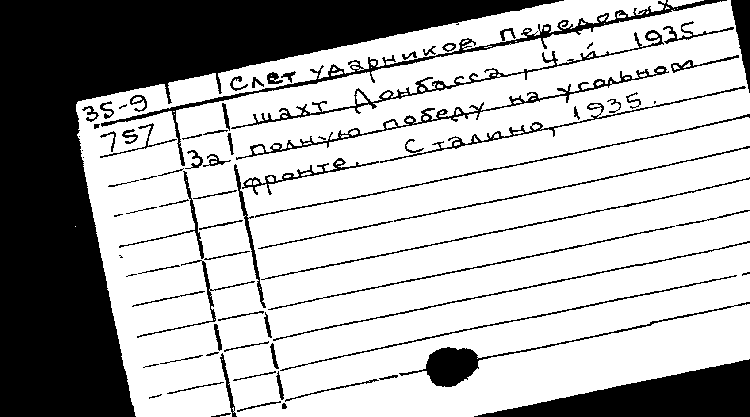 35-9 Слет ударников передовых
757 шахт Донбасса, 4-й. 1935.
За полную победу на угольном
фронте. Сталино, 1935.